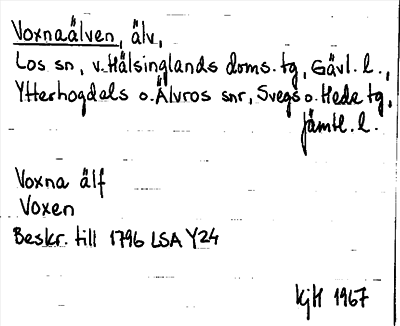 Voxnaälven, älv,
Los sn, v. Hälsinglands doms. tg, Gävl. l.,
Ytterhogdals o. Älvros snr, Svegs o. Hede tg,
Jämtl. l.
Voxna älf
Voxen
Beskr. till 1796 LSA Y24
KjH 1967